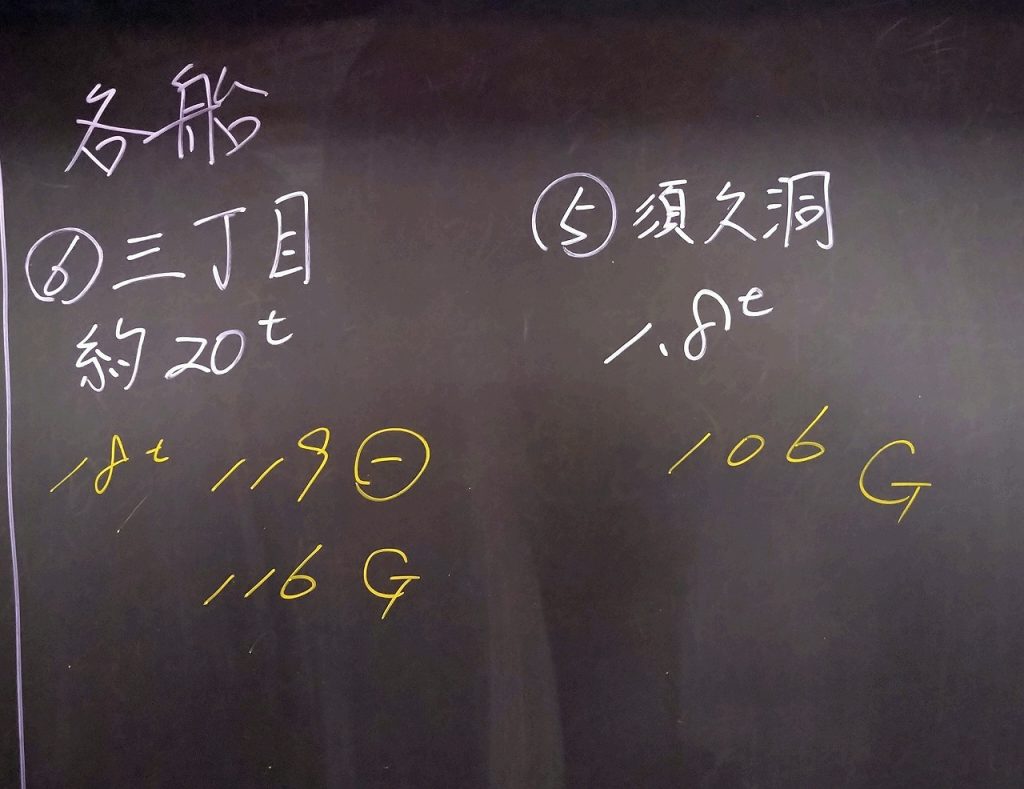 各船
⑥三丁目
約20t
18t 119㊀
116 G
⑤須久洞
1.8t
106 G